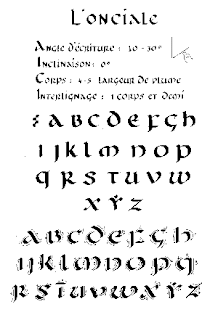 L'onciale
Angle d'écriture : 20 - 30°
Inclinaison : 0°
Corps : 4-5 largeur de plume
Interlignage : 1 corps et demi
a b c d e f g h
i j k l m n o p
q r s t u v w
x y z
a b c d e f g h
i j k l m n o p q
r s t u v w x y z